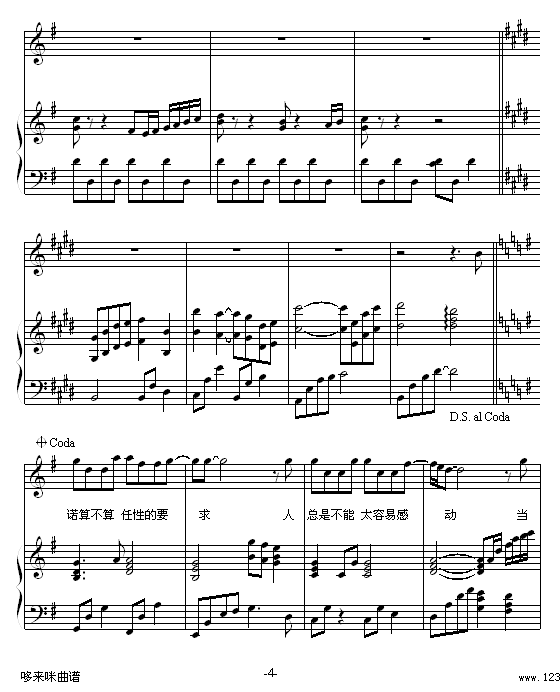 D.S. al Coda
Coda
诺算不算 任性的要 求 人 总是不能 太容易感 动 当
哆来咪曲谱 -4- www.123